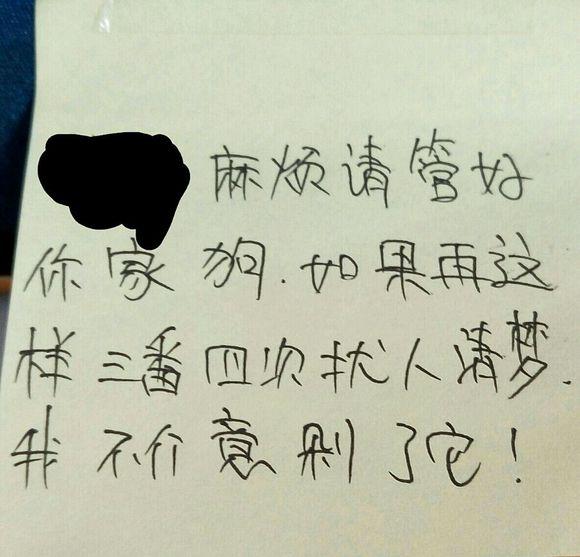 麻烦请管好
你家狗.如果再这
样三番四次扰人清梦.
我不介意剁了它!